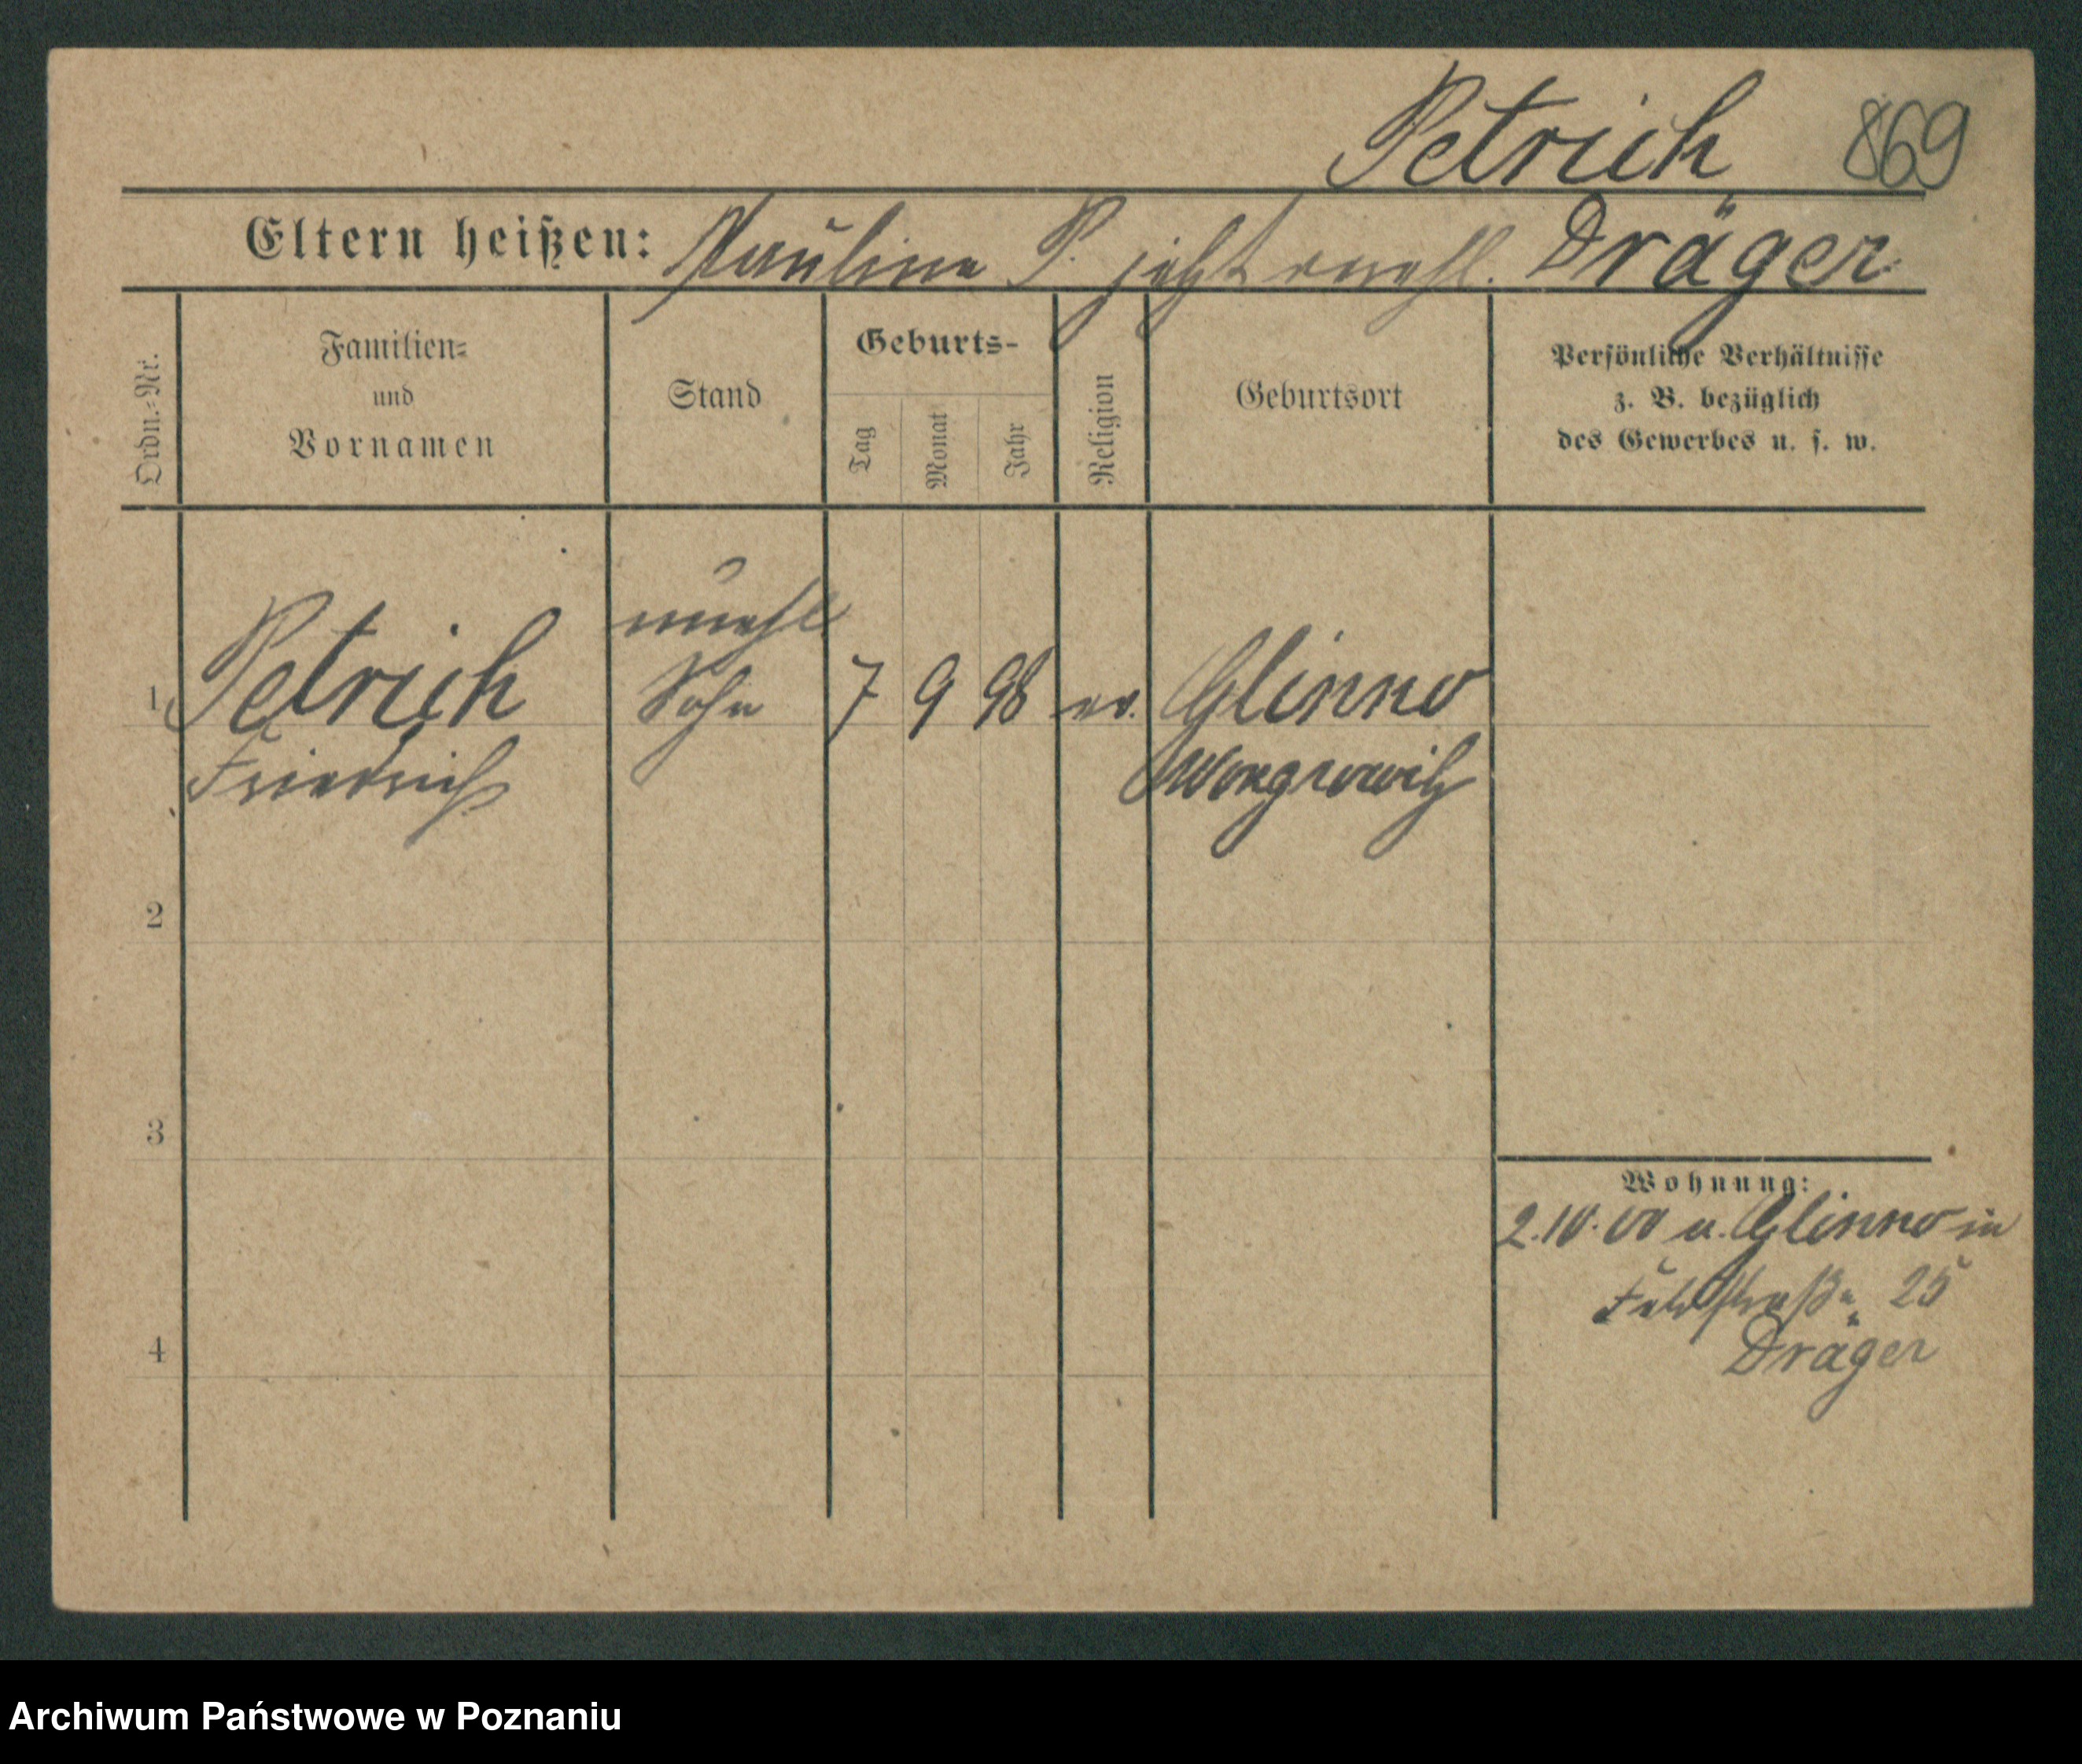 Petrich 869
Eltern heißen: Pauline P. jetzt verehl. Dräger
Ordn.-Nr.
Familien-
und
Vornamen
Stand
Geburts-
Tag
Monat
Jahr
Religion
Geburtsort
Persönliche Verhältnisse
z. B. bezüglich
des Gewerbes u. s. w.
unehl
1 Petrich Sohn 7 9 98 ev. Glinno
Friedrich Wongrowitz
2
3
Wohnung:
2.10.00 v. Glinno in
Feldstraße 25
Dräger
4
Archiwum Państwowe w Poznaniu